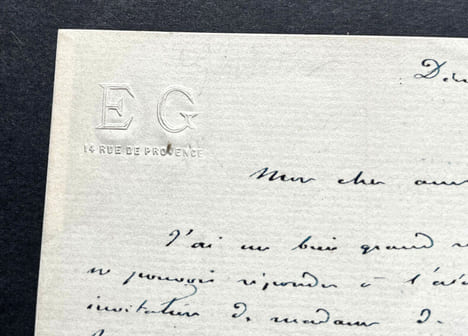 EG
14 RUE DE PROVENCE
Mon cher
J'ai un bien grand
pouvoir répondre à
invitation de madame de